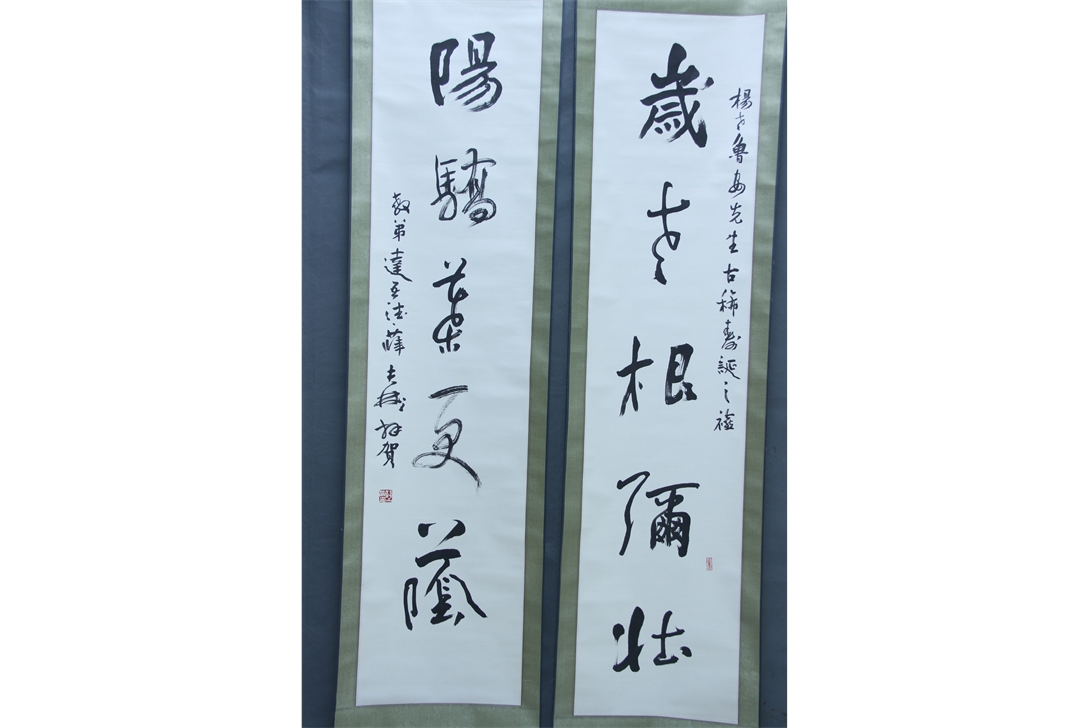 楊老魯安先生古稀壽誕之禧
歲老根彌壯
陽驕葉更蔭
教弟達吾德薛士賀